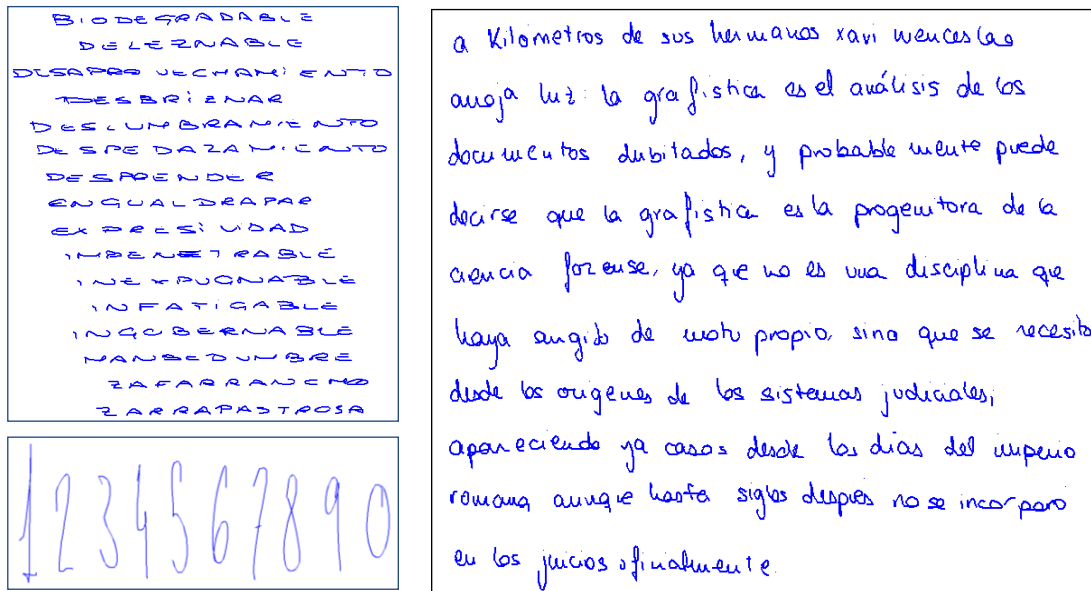 BIODEGRADABLE
DELEZNABLE
DESAPROVECHAMIENTO
DESBRIZNAR
DESLUMBRAMIENTO
DESPEDAZAMIENTO
DESPRENDER
ENGUALDRAPAR
EXPRESIVIDAD
IMPENETRABLE
INEXPUGNABLE
INFATIGABLE
INGOBERNABLE
MANSEDUMBRE
ZAFARRANCHO
ZARRAPASTROSA
1 2 3 4 5 6 7 8 9 0
a Kilometros de sus hermanos xavi wenceslao
arroja luz: la grafistica es el análisis de los
documentos dubitados, y probablemente puede
decirse que la grafistica es la progenitora de la
ciencia forense, ya que no es una disciplina que
haya surgido de motu propio, sino que se necesito
desde los origenes de los sistemas judiciales,
apareciendo ya casos desde los dias del imperio
romano aunque hasta siglos despues no se incorporo
en los juicios oficialmente.